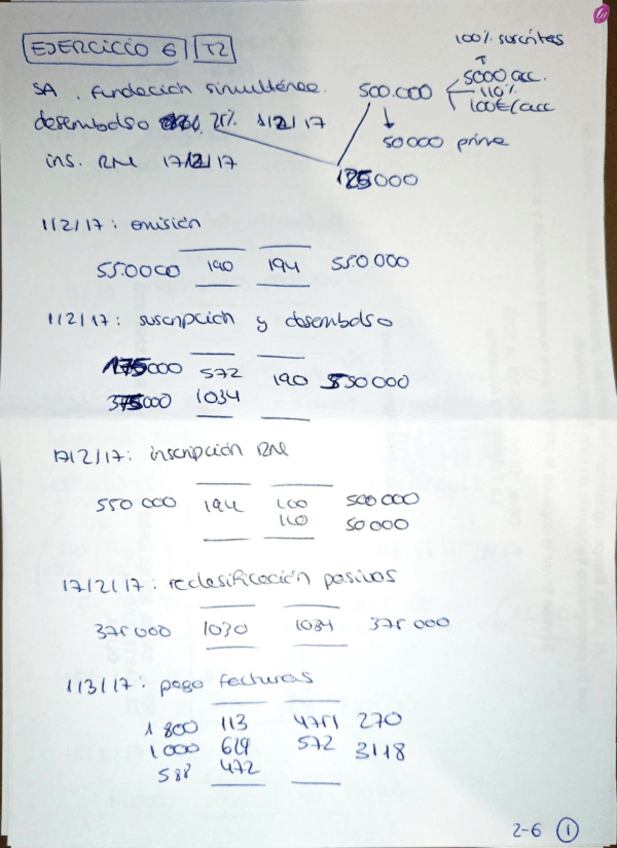 EJERCICIO 6 T2
100% suscritas
SA. Fundación simultánea. 500.000 5000 acc.
110%
100€/acc
desembolso 25% 1/2/17
50000 prima
ins. RM 17/2/17
125000
1/2/17: emisión
550000 190 194 550.000
1/2/17: suscripción y desembolso
175000 572 190 550000
375000 1034
17/2/17: inscripción RM
550 000 194 100 500000
110 50000
17/2/17: reclasificación pasivos
375000 1030 1034 375 000
1/3/17: pago facturas
1 800 113 4751 270
1 000 629 572 3118
588 472
2-6 1